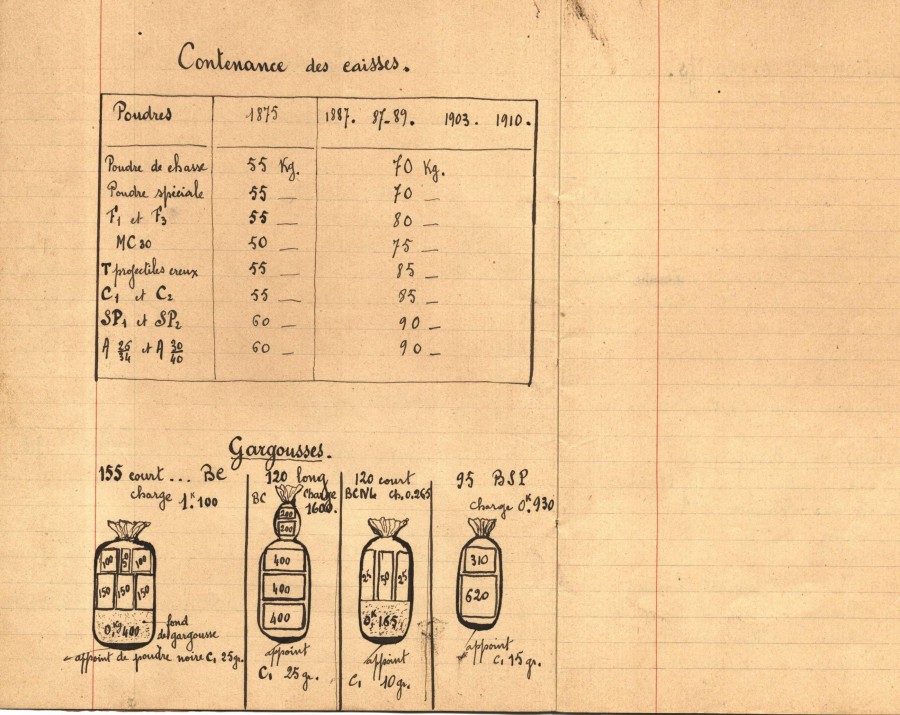 Contenance des caisses.
Poudres 1875 1887. 87-89. 1903. 1910.
Poudre de chasse 55 Kg. 70 Kg.
Poudre spéciale 55 — 70 —
F1 et F3 55 — 80 —
MC30 50 — 75 —
T projectiles creux 55 — 85 —
C1 et C2 55 — 85 —
SP1 et SP2 60 — 90 —
A 26/34 et A 30/40 60 — 90 —
Gargousses.
155 court ... BC
charge 1K.100
100 50 100
150 150 150
0,Kg 400
fond
de gargousse
appoint de poudre noire C1 25gr.
120 long
BC Charge
1600.
200
200
400
400
400
appoint
C1 25 gr.
120 court
BCNL Ch. 0.265
25 50 25
0,K 165
appoint
C1 10 gr.
95 BSP
charge 0K.930
310
620
appoint
C1 15 gr.